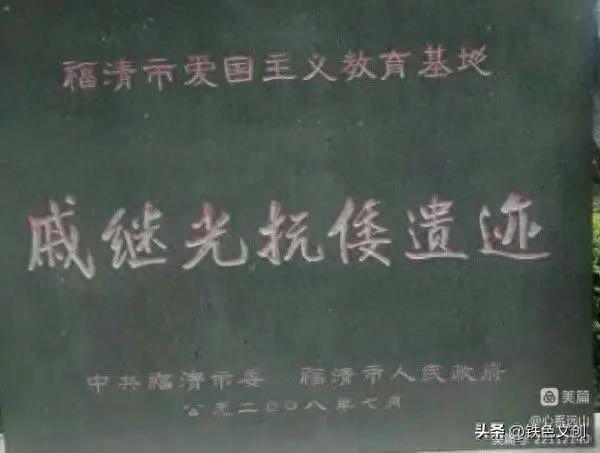 福清市爱国主义教育基地
戚继光抗倭遗迹
中共福清市委 福清市人民政府
公元二〇〇八年七月
美篇
@心系远山
头条@铁色文创
美篇号